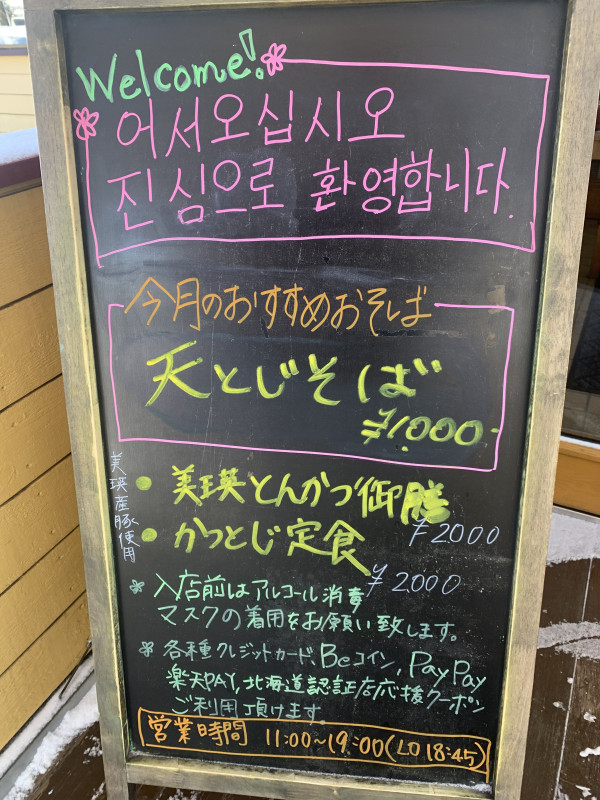 Welcome!
어서오십시오
진심으로 환영합니다.
今月のおすすめおそば
天とじそば
¥1,000-
美瑛産豚使用
• 美瑛とんかつ御膳
¥2000
• かつとじ定食
¥2000
入店前はアルコール消費
マスクの着用をお願い致します。
各種クレジットカード、Beコイン, PayPay
楽天PAY, 北海道認証店応援クーポン
ご利用頂けます。
営業時間 11:00~19:00(LO 18:45)